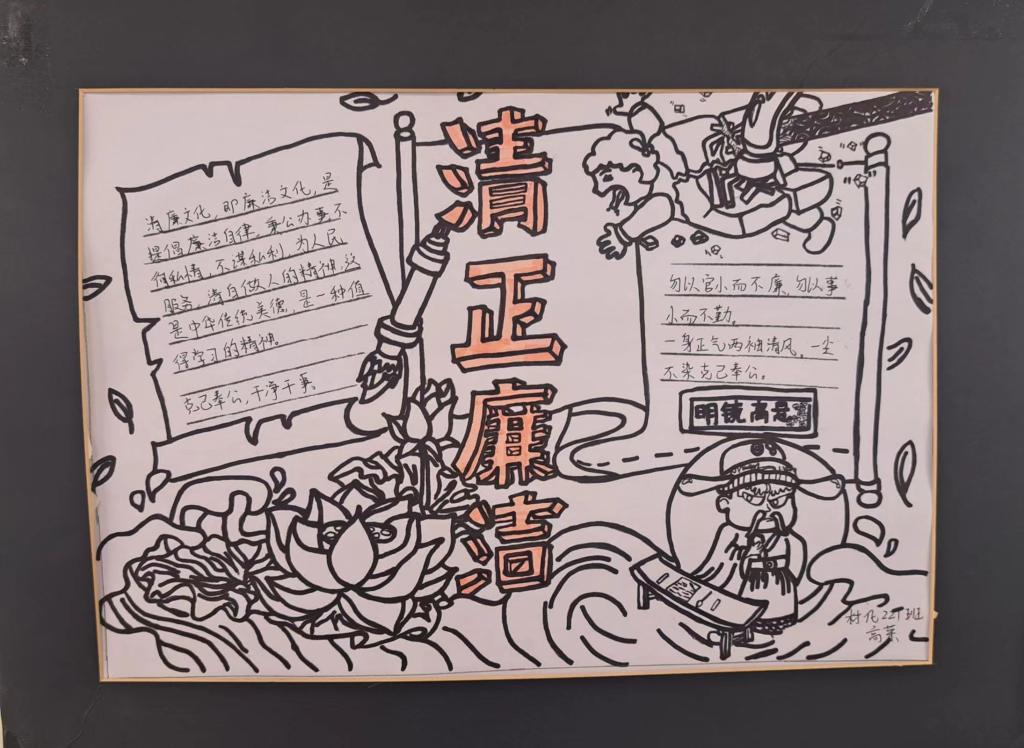 清廉文化,即廉洁文化,是
提倡廉洁自律,秉公办事,不
徇私情,不谋私利,为人民
服务,清白做人的精神,这
是中华传统美德,是一种值
得学习的精神。
克己奉公,干净干事。
清正廉洁
勿以官小而不廉,勿以事
小而不勤。
一身正气两袖清风,一尘
不染克己奉公。
明镜高悬
材化221班
高莱